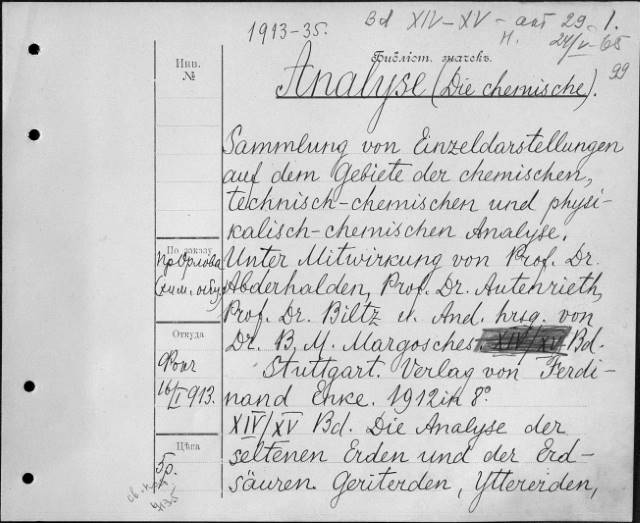 1913-35. Bd XIV-XV - акт 29 - 1.
н. 24/V-65
99
Инв.
№
Библіот. значекъ.
Analyse (Die chemische).
Sammlung von Einzeldarstellungen
auf dem Gebiete der chemischen,
technisch-chemischen und physi-
kalisch-chemischen Analyse.
По заказу
пр. Орлова
Unter Mitwirkung von Prof. Dr.
Abderhalden, Prof. Dr. Autenrieth,
Prof. Dr. Biltz u. And. hrsg. von
Dr. B. M. Margosches. XIV/XV Bd.
Откуда
Фокг
16/I 1913.
Stuttgart. Verlag von Ferdi-
nand Enke. 1912 in 8°
XIV/XV Bd. Die Analyse der
seltenen Erden und der Erd-
säuren. Geriterden, Yttererden,
Цѣна
5р.